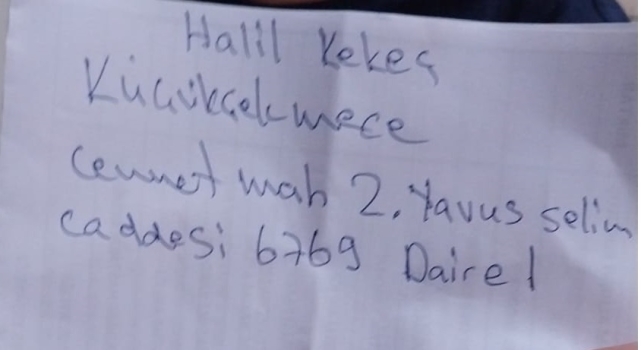 Halil Kekeç
Küçükçekmece
Cennet mah 2. Yavus selim
caddesi 6769 Daire 1